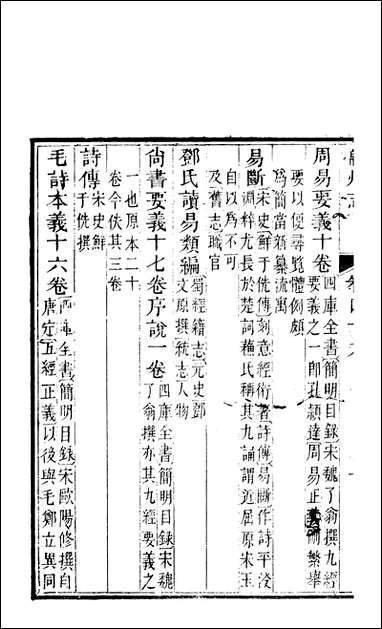 周易要義十卷四庫全書簡明目録宋魏了翁撰九經
要義之一卽孔穎達周易正義刪繁舉
要以便尋覽體例頗
爲簡當新纂流寓
易斷宋史鮮于侁傳刻意經術著詩傳易斷作詩平淡
淵粹尤長於楚詞蘇氏稱其九誦謂近屈原宋玉
自以爲不可
及舊志職官
鄧氏讀易類編蜀經籍志元史鄧
文原撰統志人物
尙書要義十七卷序說一卷四庫全書簡明目録宋魏
了翁撰亦其九經要義之
一也原本二十
卷今佚其三卷
詩傳宋史鮮
于侁撰
毛詩本義十六卷四庫全書簡明目録宋歐陽修撰自
唐定五經正義以後與毛鄭立異同